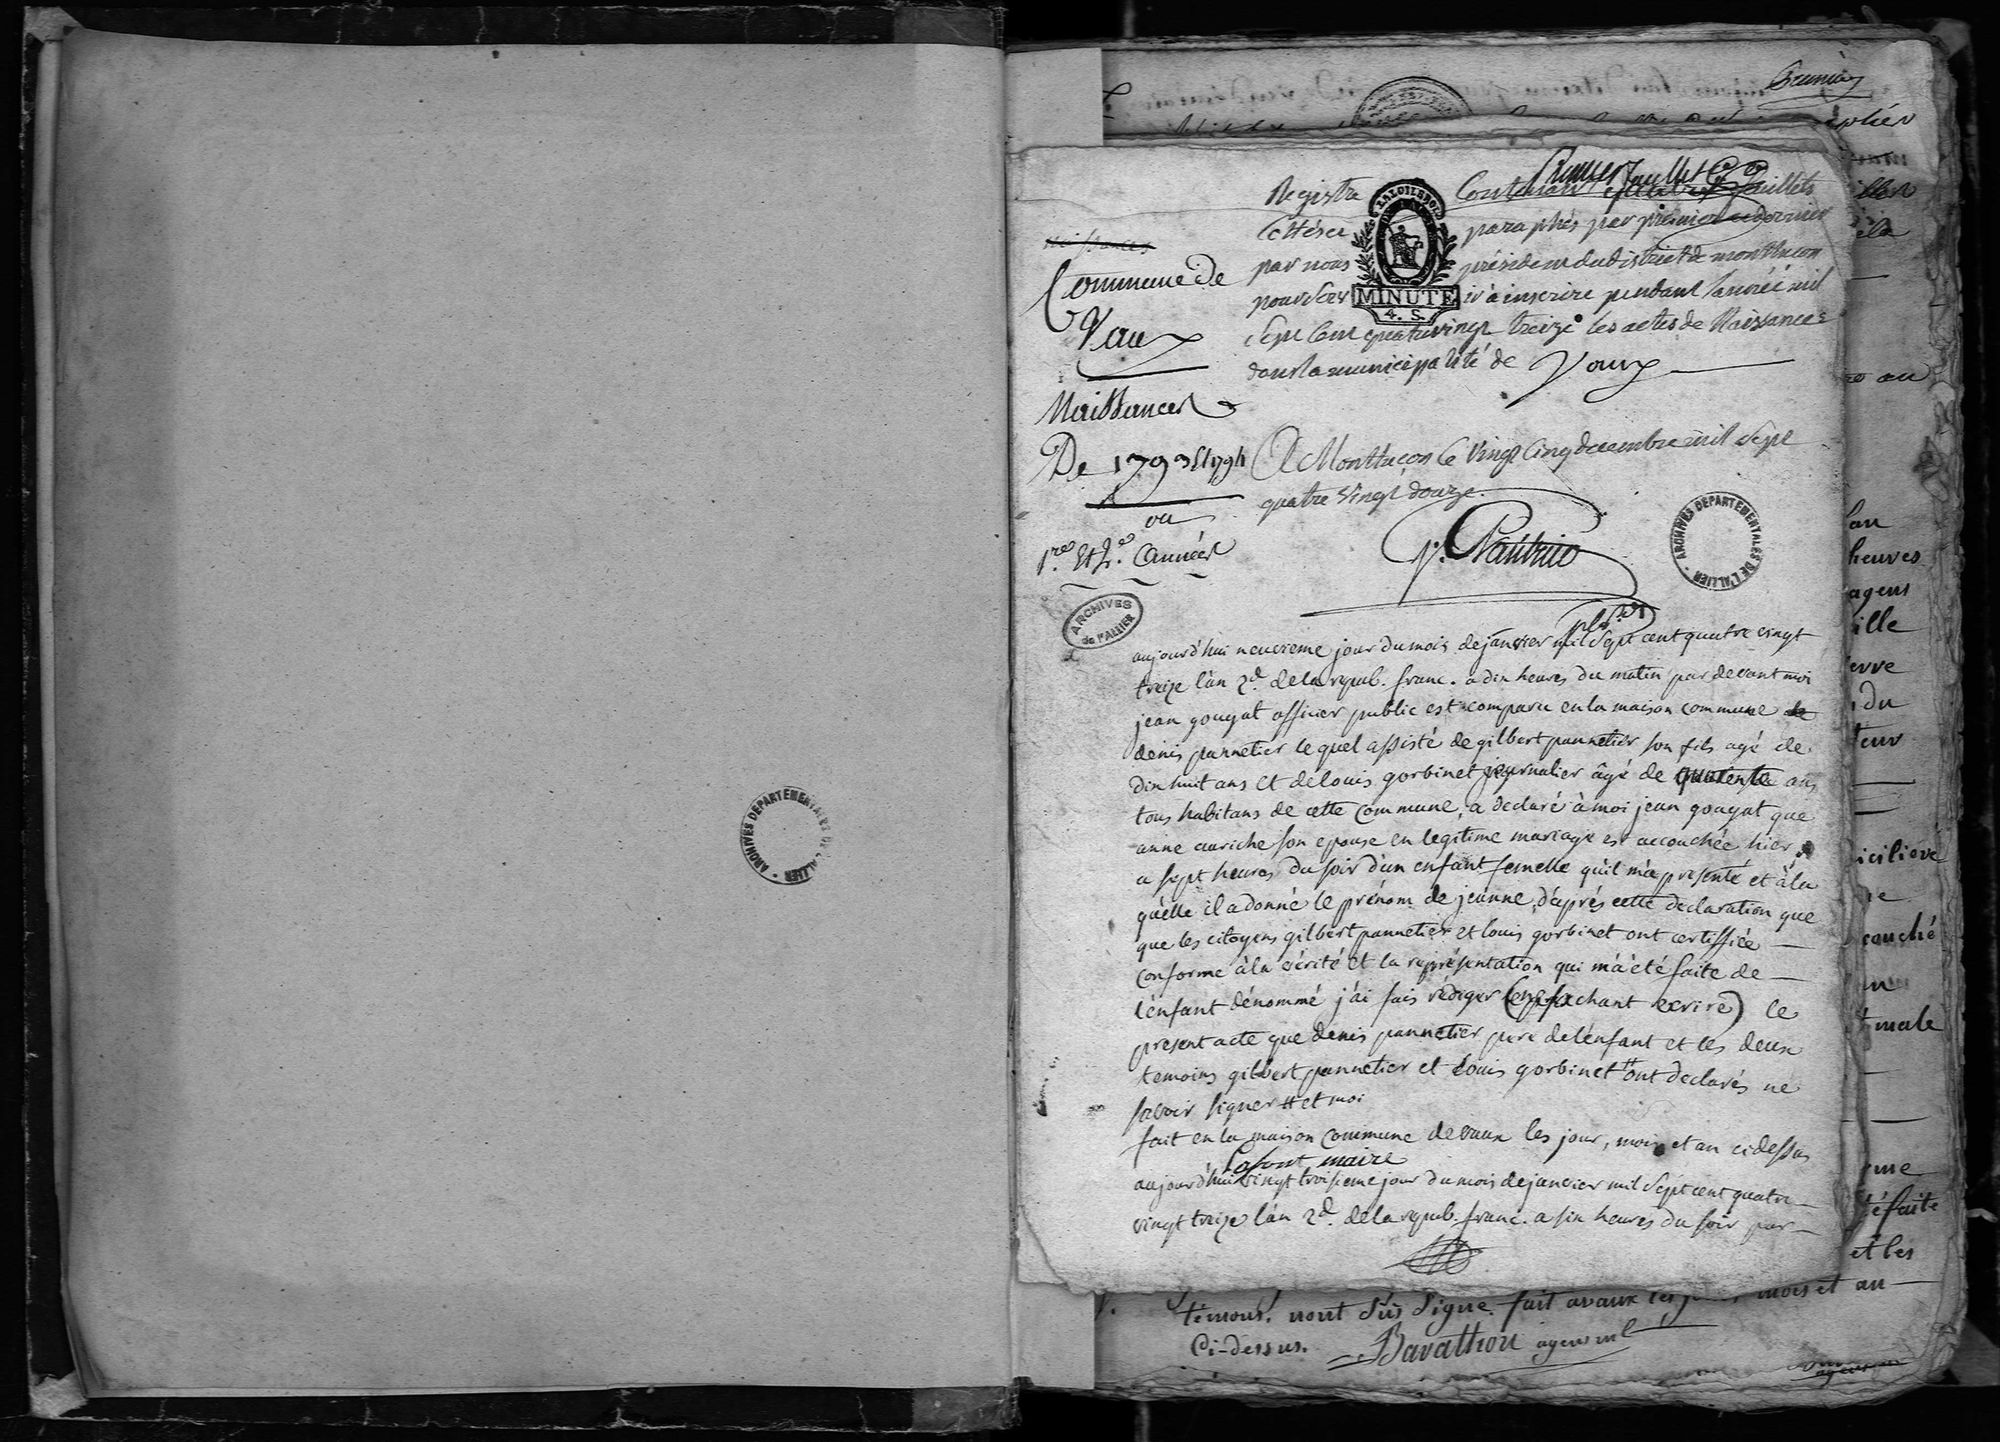 ARCHIVES DEPARTEMENTALES DE L'ALLIER
Premier feuillet
naissances
Commune de
Vaux
Naissances
De 1793 Et 1794
ou
1.re Et 2.e Années
ARCHIVES
de l'ALLIER
LA LOI LE ROI
MINUTE
4. S.
Registre Contenant quatre feuillets
Cottés et paraphés par premier et dernier
par nous président du district de montlucon
pour servir à inscrire pendant l'année mil
Sept Cent quatre vingt treize les actes de Naissances
dans la municipalité de Vaux
A Montluçon le Vingt Cinq decembre mil Sept
quatre Vingt douze.
ARCHIVES DEPARTEMENTALES DE L'ALLIER
aujourd'hui neuvieme jour du mois de janvier mil Sept cent quatre vingt
treize l'an 2d. de la repub. franc. a dix heures du matin par devant moi
jean gouyat officier public est comparu en la maison commune de
denis pannetier le quel assisté de gilbert pannetier son fils agé de
dix huit ans et de louis gorbinet journalier âgé de quarente ans
tous habitans de cette commune, a declaré à moi jean gouyat que
anne auriche son epouse en legitime mariage est accouchée hier
a sept heures du soir d'un enfant femelle qu'il m'a presenté et à la
quelle il a donné le prénom de jeanne, d'aprés cette declaration que
que les citoyens gilbert pannetier et louis gorbinet ont certiffiée
conforme à la vérité et la représentation qui m'a été faite de
l'enfant dénommé j'ai fais rediger (ne sachant ecrire) le
present acte que denis pannetier pere de l'enfant et les deux
temoins gilbert pannetier et louis gorbinet # ont declarés ne
savoir signer # et moi
fait en la maison commune de vaux les jour, mois et an ci dessus
Lafont maire
aujourd'hui vingt troisieme jour du mois de janvier mil Sept cent quatre
vingt treize l'an 2d. de la repub. franc. a six heures du soir par
témoins. nont sus signe. fait avaux les mois et an
Ci-dessus. Bavathon agent ml
an
heuves
agens
ille
du
teur
couché
male
me
et les